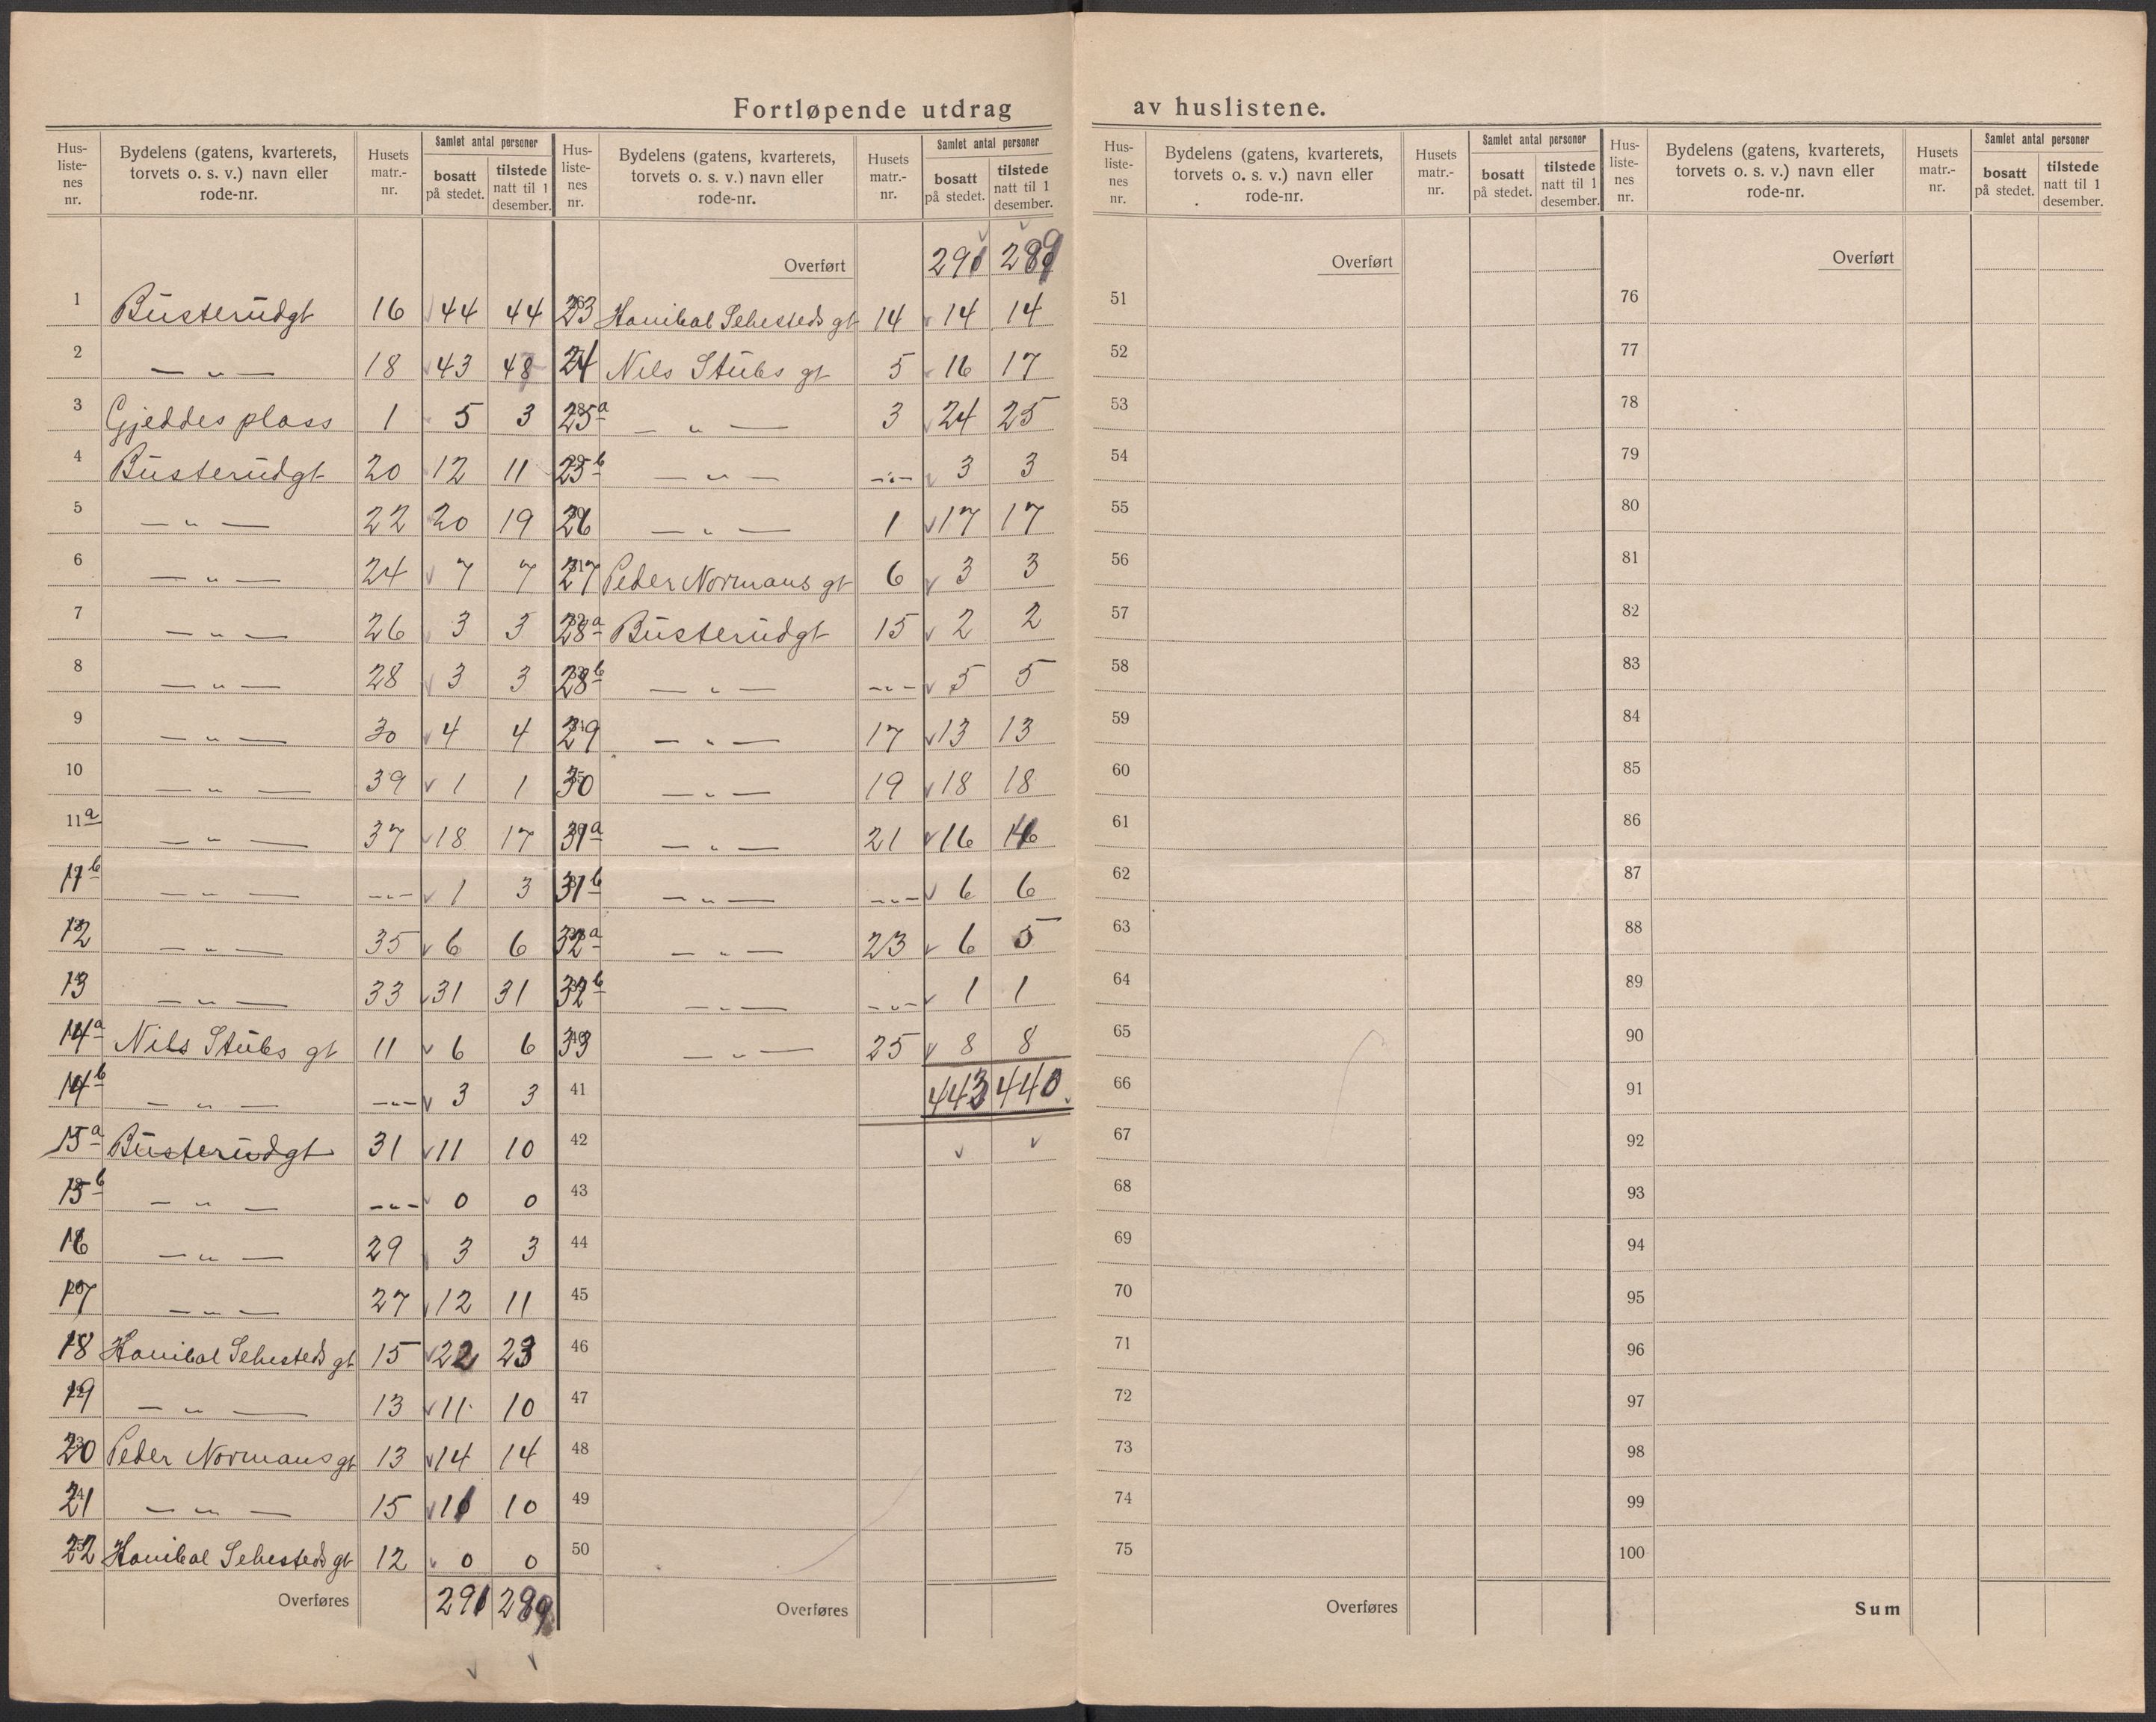 Fortløpende utdrag av huslistene.
Hus-listenes nr. | Bydelens (gatens, kvarterets, torvets o. s. v.) navn eller rode-nr. | Husets matr.-nr. | Samlet antal personer bosatt på stedet. | tilstede natt til 1 desember.
1 Büsterüdgt 16 44 44
2 — „ — 18 43 48
3 Gjeddes plass 1 5 3
4 Büsterüdgt 20 12 11
5 — „ — 22 20 19
6 — „ — 24 7 7
7 — „ — 26 3 3
8 — „ — 28 3 3
9 — „ — 30 4 4
10 — „ — 39 1 1
11a — „ — 37 18 17
11b — „ — -„- 1 3
12 — „ — 35 6 6
13 — „ — 33 31 31
14a Nils Stübs gt 11 6 6
14b — „ — -„- 3 3
15a Büsterüdgt 31 11 10
15b — „ — -„- 0 0
16 — „ — 29 3 3
17 — „ — 27 12 11
18 Hanibal Sehesteds gt 15 22 23
19 — „ — 13 11 10
20 Peder Normans gt 13 14 14
21 — „ — 15 11 10
22 Hanibal Sehesteds gt 12 0 0
Overføres 291 289
Hus-listenes nr. | Bydelens (gatens, kvarterets, torvets o. s. v.) navn eller rode-nr. | Husets matr.-nr. | Samlet antal personer bosatt på stedet. | tilstede natt til 1 desember.
Overført 291 289
23 Hanibal Sehesteds gt 14 14 14
24 Nils Stübs gt 5 16 17
25a — „ — 3 24 25
25b — „ — -„- 3 3
26 — „ — 1 17 17
27 Peder Normans gt 6 3 3
28a Büsterüdgt 15 2 2
28b — „ — -„- 5 5
29 — „ — 17 13 13
30 — „ — 19 18 18
31a — „ — 21 16
31b — „ — -„- 6 6
32a — „ — 23 6 5
32b — „ — -„- 1 1
33 — „ — 25 8 8
41 443 440.
42
43
44
45
46
47
48
49
50
Overføres
Hus-listenes nr. | Bydelens (gatens, kvarterets, torvets o. s. v.) navn eller rode-nr. | Husets matr.-nr. | Samlet antal personer bosatt på stedet. | tilstede natt til 1 desember.
Overført
51
52
53
54
55
56
57
58
59
60
61
62
63
64
65
66
67
68
69
70
71
72
73
74
75
Overføres
Hus-listenes nr. | Bydelens (gatens, kvarterets, torvets o. s. v.) navn eller rode-nr. | Husets matr.-nr. | Samlet antal personer bosatt på stedet. | tilstede natt til 1 desember.
Overført
76
77
78
79
80
81
82
83
84
85
86
87
88
89
90
91
92
93
94
95
96
97
98
99
100
Sum